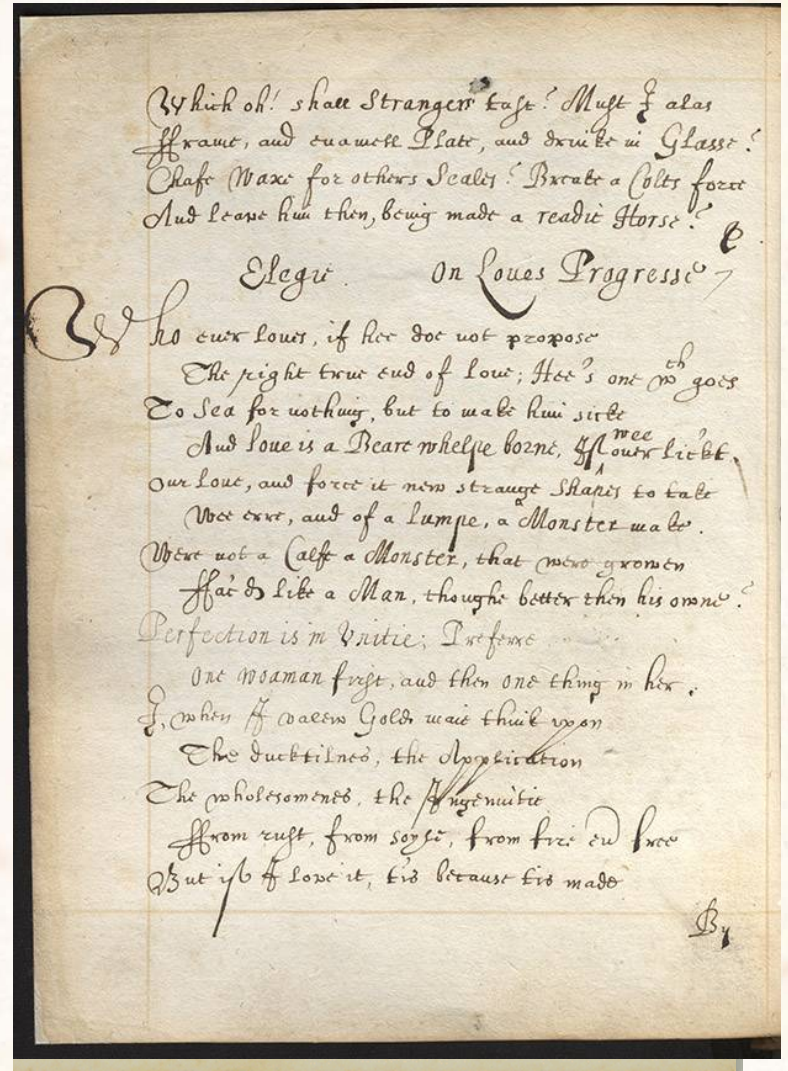 Which oh! shall Strangers tast? Must I alas
fframe, and enamell Plate, and drinke in Glasse?
Chafe Waxe for others Seales? Breake a Colts force
And leave him then, being made a readie Horse?
Elegie. On Loves Progresse
Who ever loves, if hee doe not propose
The right true end of love; Hee's one wch goes
To Sea for nothing, but to make him sicke
And love is a Beare whelpe borne, If wee over lickt
Our love, and force it new strange Shapes to take
Wee erre, and of a Lumpe, a Monster make.
Were not a Calfe a Monster, that were growen
ffac'd like a Man, thoughe better then his owne?
Perfection is in Vnitie; Preferre
One woaman first, and then one thing in her.
I, when I valew Gold, maie think vpon
The ducktilnes, the Application
The wholesomenes, the Ingenuitie
ffrom rust, from soyle, from fire free
But if I love it, tis because tis made
By